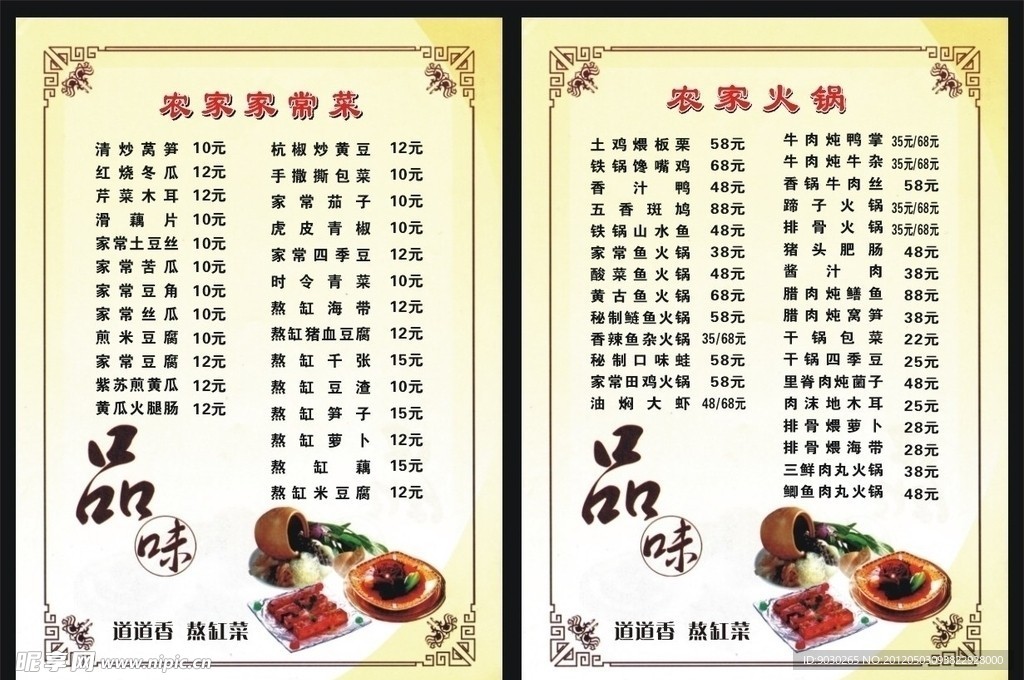 农家家常菜
清炒莴笋 10元
红烧冬瓜 12元
芹菜木耳 12元
滑藕片 10元
家常土豆丝 10元
家常苦瓜 10元
家常豆角 10元
家常丝瓜 10元
煎米豆腐 10元
家常豆腐 12元
紫苏煎黄瓜 12元
黄瓜火腿肠 12元
杭椒炒黄豆 12元
手撒撕包菜 10元
家常茄子 10元
虎皮青椒 10元
家常四季豆 12元
时令青菜 10元
熬缸海带 12元
熬缸猪血豆腐 12元
熬缸千张 15元
熬缸豆渣 10元
熬缸笋子 15元
熬缸萝卜 12元
熬缸藕 15元
熬缸米豆腐 12元
品味
道道香 熬缸菜
农家火锅
土鸡煨板栗 58元
铁锅馋嘴鸡 68元
香汁鸭 48元
五香斑鸠 88元
铁锅山水鱼 48元
家常鱼火锅 38元
酸菜鱼火锅 48元
黄古鱼火锅 68元
秘制鲢鱼火锅 58元
香辣鱼杂火锅 35/68元
秘制口味蛙 58元
家常田鸡火锅 58元
油焖大虾 48/68元
牛肉炖鸭掌 35元/68元
牛肉炖牛杂 35元/68元
香锅牛肉丝 58元
蹄子火锅 35元/68元
排骨火锅 35元/68元
猪头肥肠 48元
酱汁肉 38元
腊肉炖鳝鱼 88元
腊肉炖窝笋 38元
干锅包菜 22元
干锅四季豆 25元
里脊肉炖菌子 48元
肉沫地木耳 25元
排骨煨萝卜 28元
排骨煨海带 28元
三鲜肉丸火锅 38元
鲫鱼肉丸火锅 48元
品味
道道香 熬缸菜
昵享网 www.nipic.cn